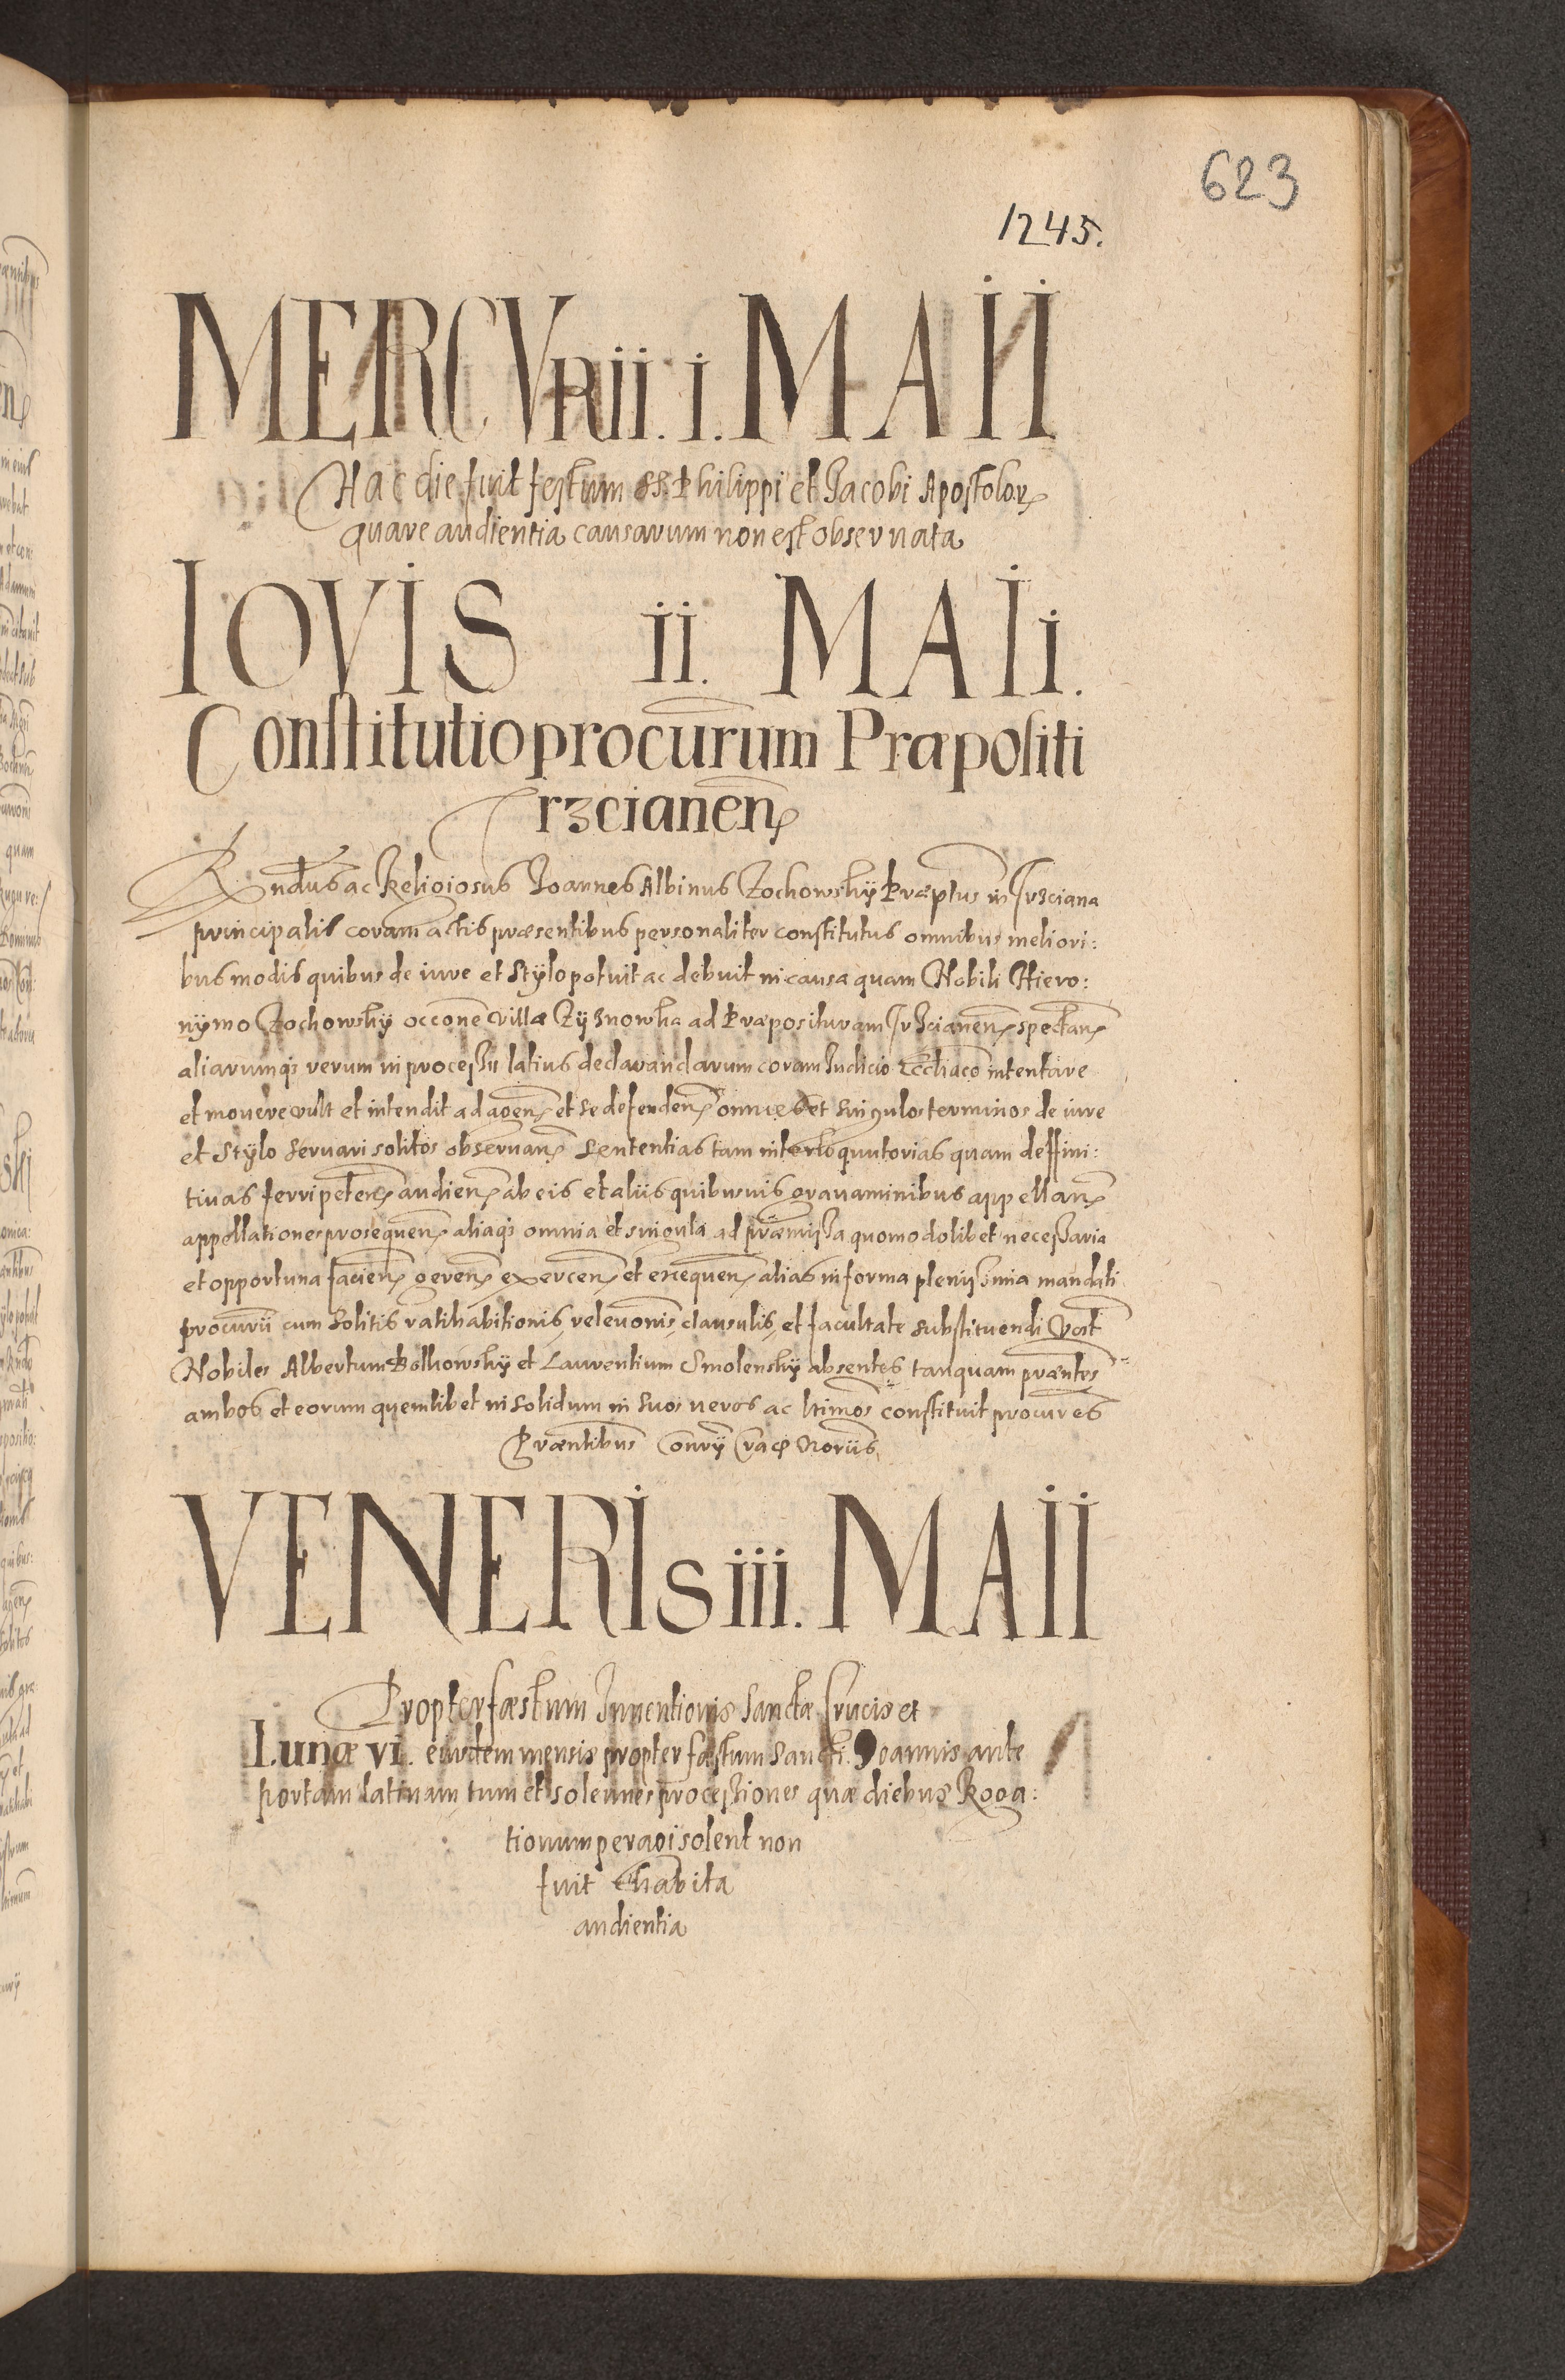 623
1245.
MERCVRii. i. MAII
Hac die fuit festum SS. Philippi et Jacobi Apostolor
quare audientia causarum non est obseruata
IOVIS ii. MAIi.
Constitutio procurum Præpositi
Trzcianen
Rndus ac Religiosus Joannes Albinus Zochowskÿ Præptus in Trzciana
principalis coram actis præsentibus personaliter constitutus omnibus meliori:
bus modis quibus de iure et Stÿlo potuit ac debuit in causa quam Nobili Hiero:
nÿmo Zochowskÿ occone villæ Zÿznowka ad Præposituram Trzcianen spectan
aliarumq rerum in processu latius declarandarum coram Judicio Eccliaco intentare
et mouere vult et intendit ad agen et se defenden omnes et singulos terminos de iure
et Stÿlo seruari solitos obseruan Sententias tam interloquutorias quam deffini:
tiuas ferri peten audien ab eis et aliis quibusuis grauaminibus appellan
appellationes prosequen aliaq omnia et singula ad præmissa quomodolibet necessaria
et opportuna facien geren exercen et exequen alias in forma plenissima mandati
procurii cum solitis ratihabitionis, releuonis, clausulis, et facultate substituendi
Nobiles Albertum Bolkowskÿ et Laurentium Smolenskÿ absentes tanquam præntes
ambos et eorum quemlibet in solidum in suos veros ac ltimos constituit procures
Præntibus Noriis
VENERIS iii. MAII
Propter fæstum Inuentionis Sanctæ Crucis et
Lunæ vi. eiusdem mensis propter fæstum Sancti Joannis ante
portam latinam tum et solennes processiones quæ diebus Roga:
tionum peragi solent non
fuit habita
audientia